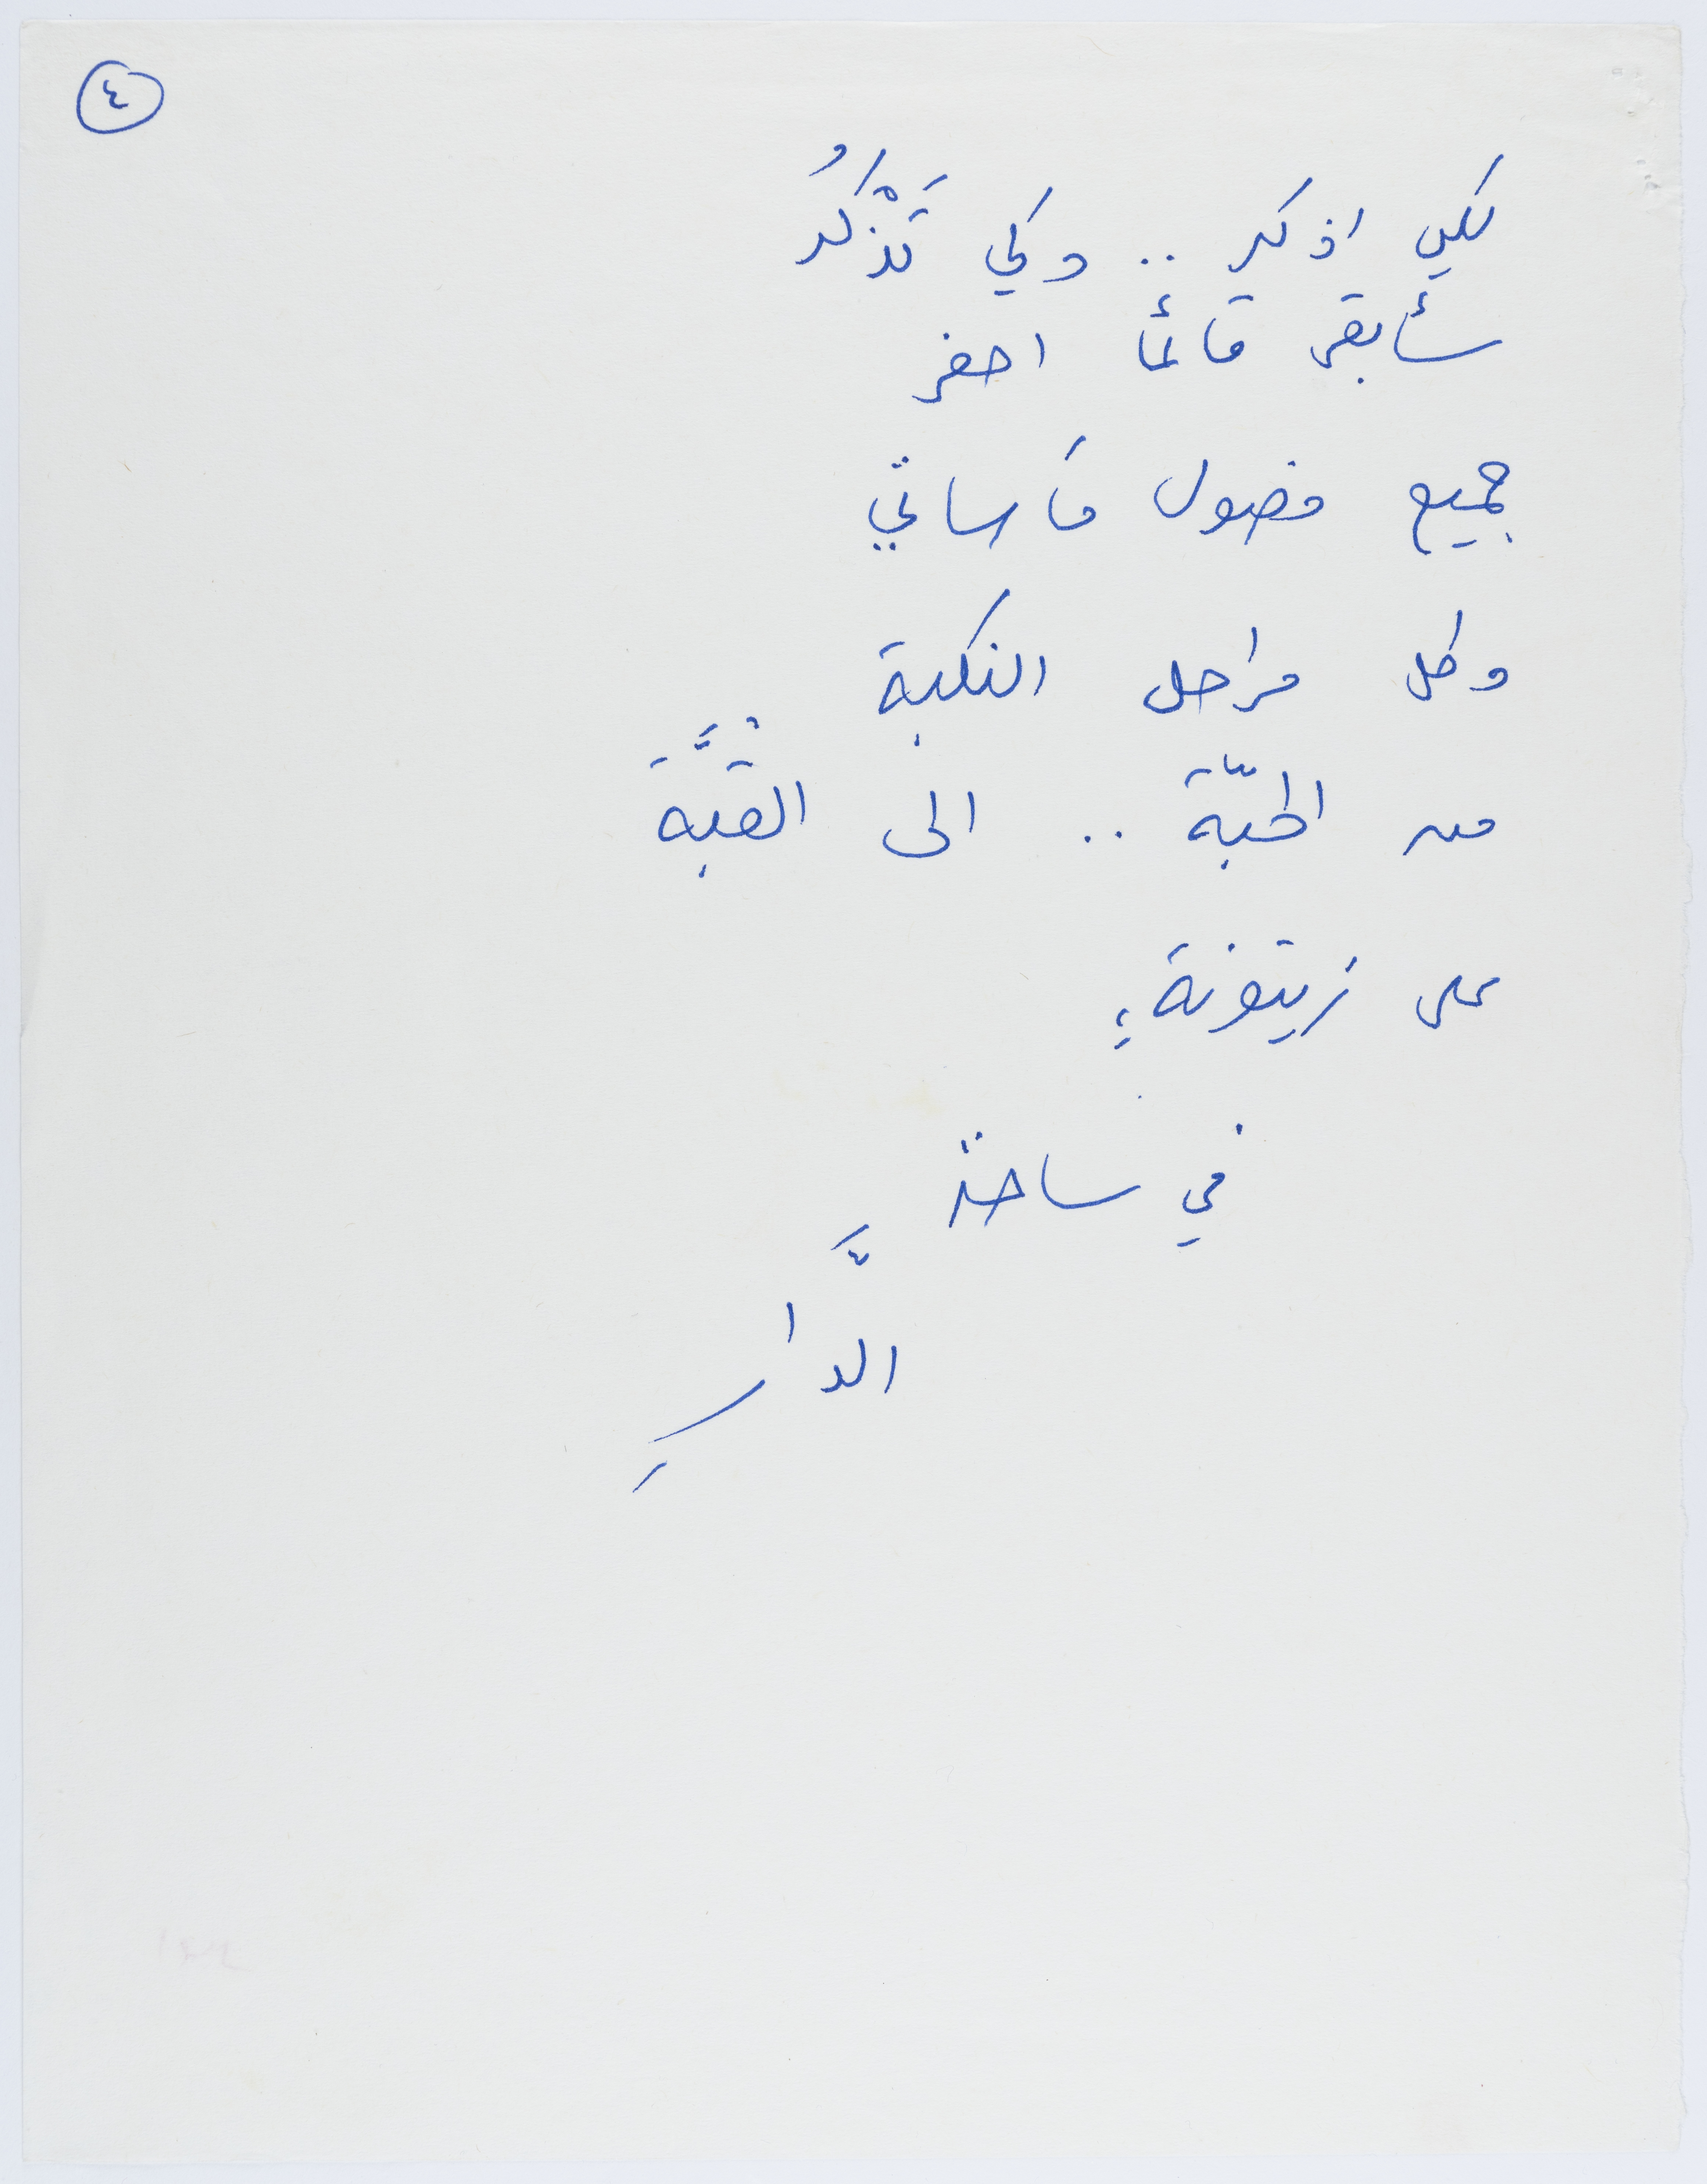 ٤
لكي اذكر .. وكي تَذْكُرُ
سأبقى قائمًا احفر
جميع فصول مأساتي
وكل مراحل النكبة
من الحبّة .. الى القُبَّة
على زيتونة،
في ساحة
الدَّارِ